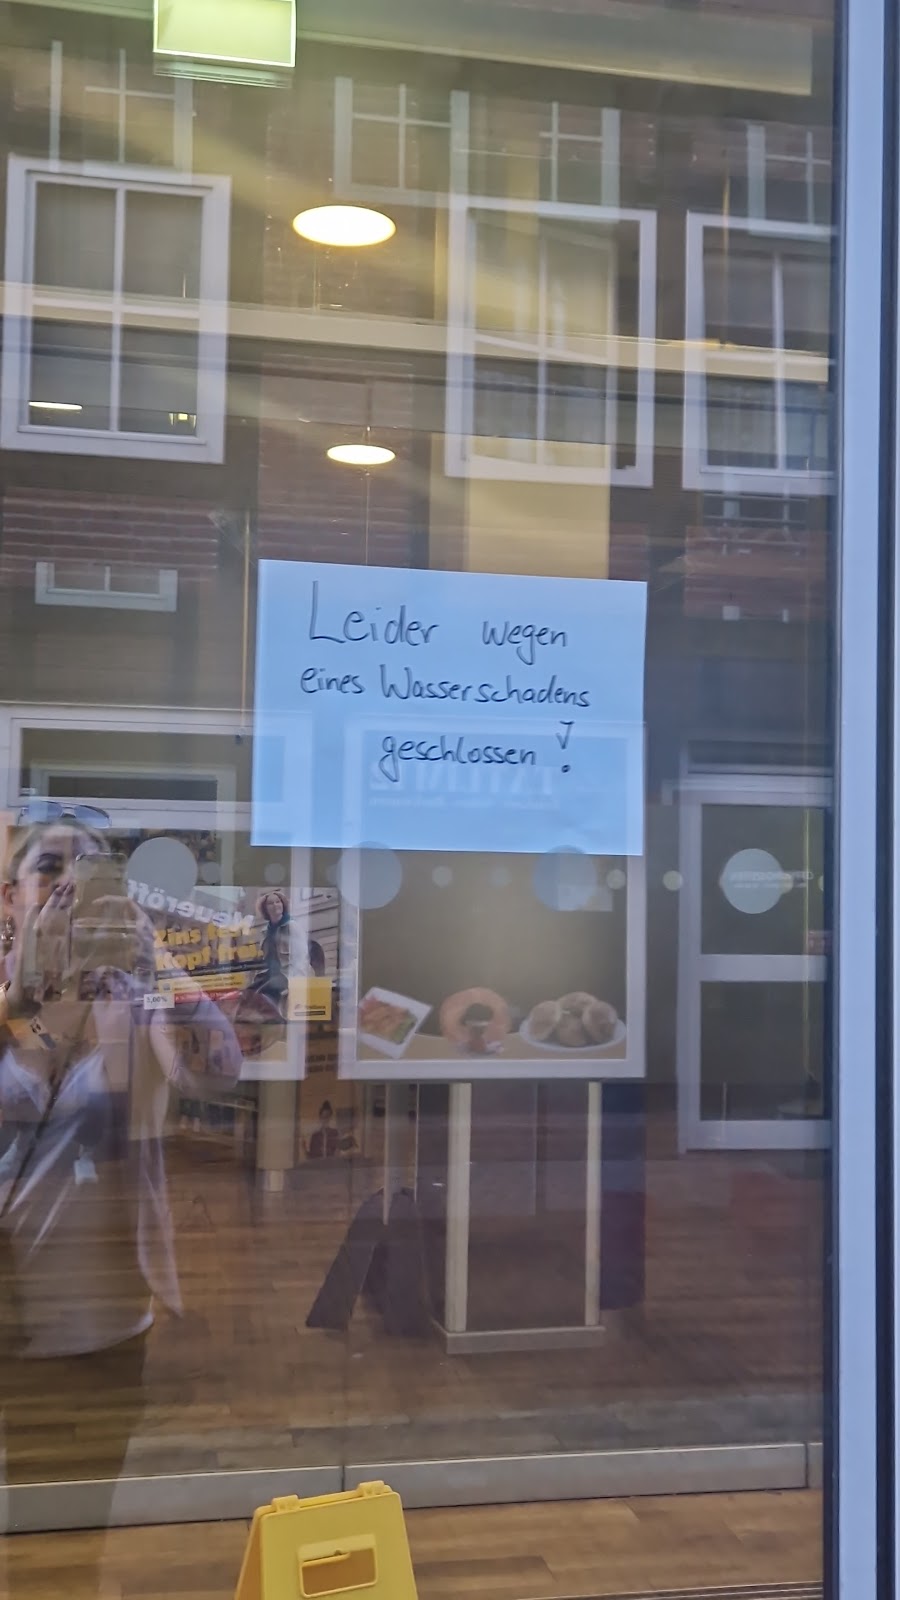 Leider wegen
eines Wasserschadens
geschlossen!
Neueröff
Zins fest
Kopf frei.